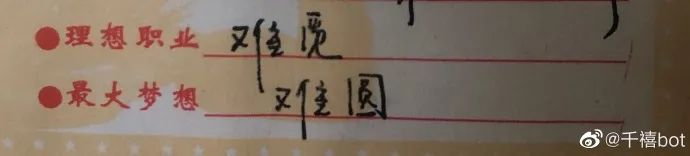 ●理想职业 难觅
●最大梦想 难圆
@千禧bot